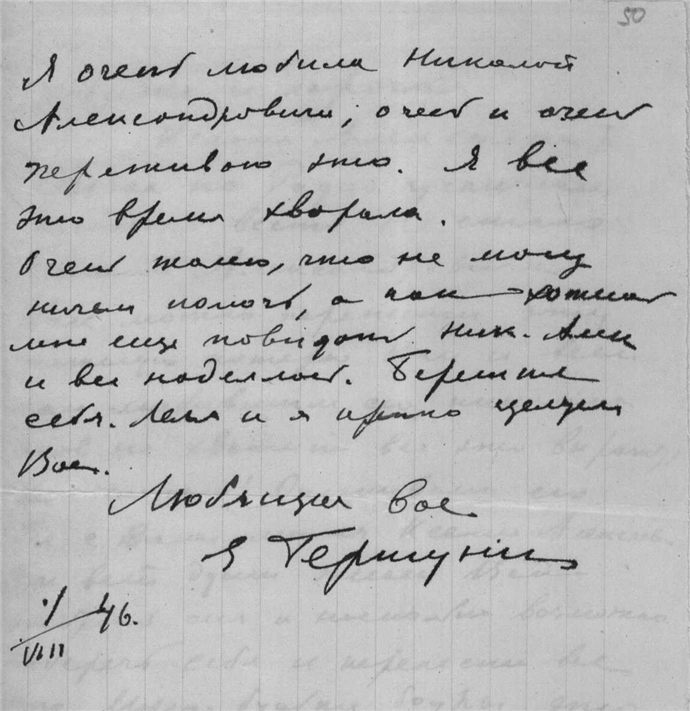 50
Я очень любила Николая
Александровича, очень и очень
переживаю это. Я все
это время хворала.
Очень жалею, что не могу
ничем помочь, а как хотелось
мне еще повидать Ник. Алек
и все надеялась. Берегите
себя. Леля и я крепко целуем
Вас.
Любящая вас
Я Гершуни
1/VIII 46.